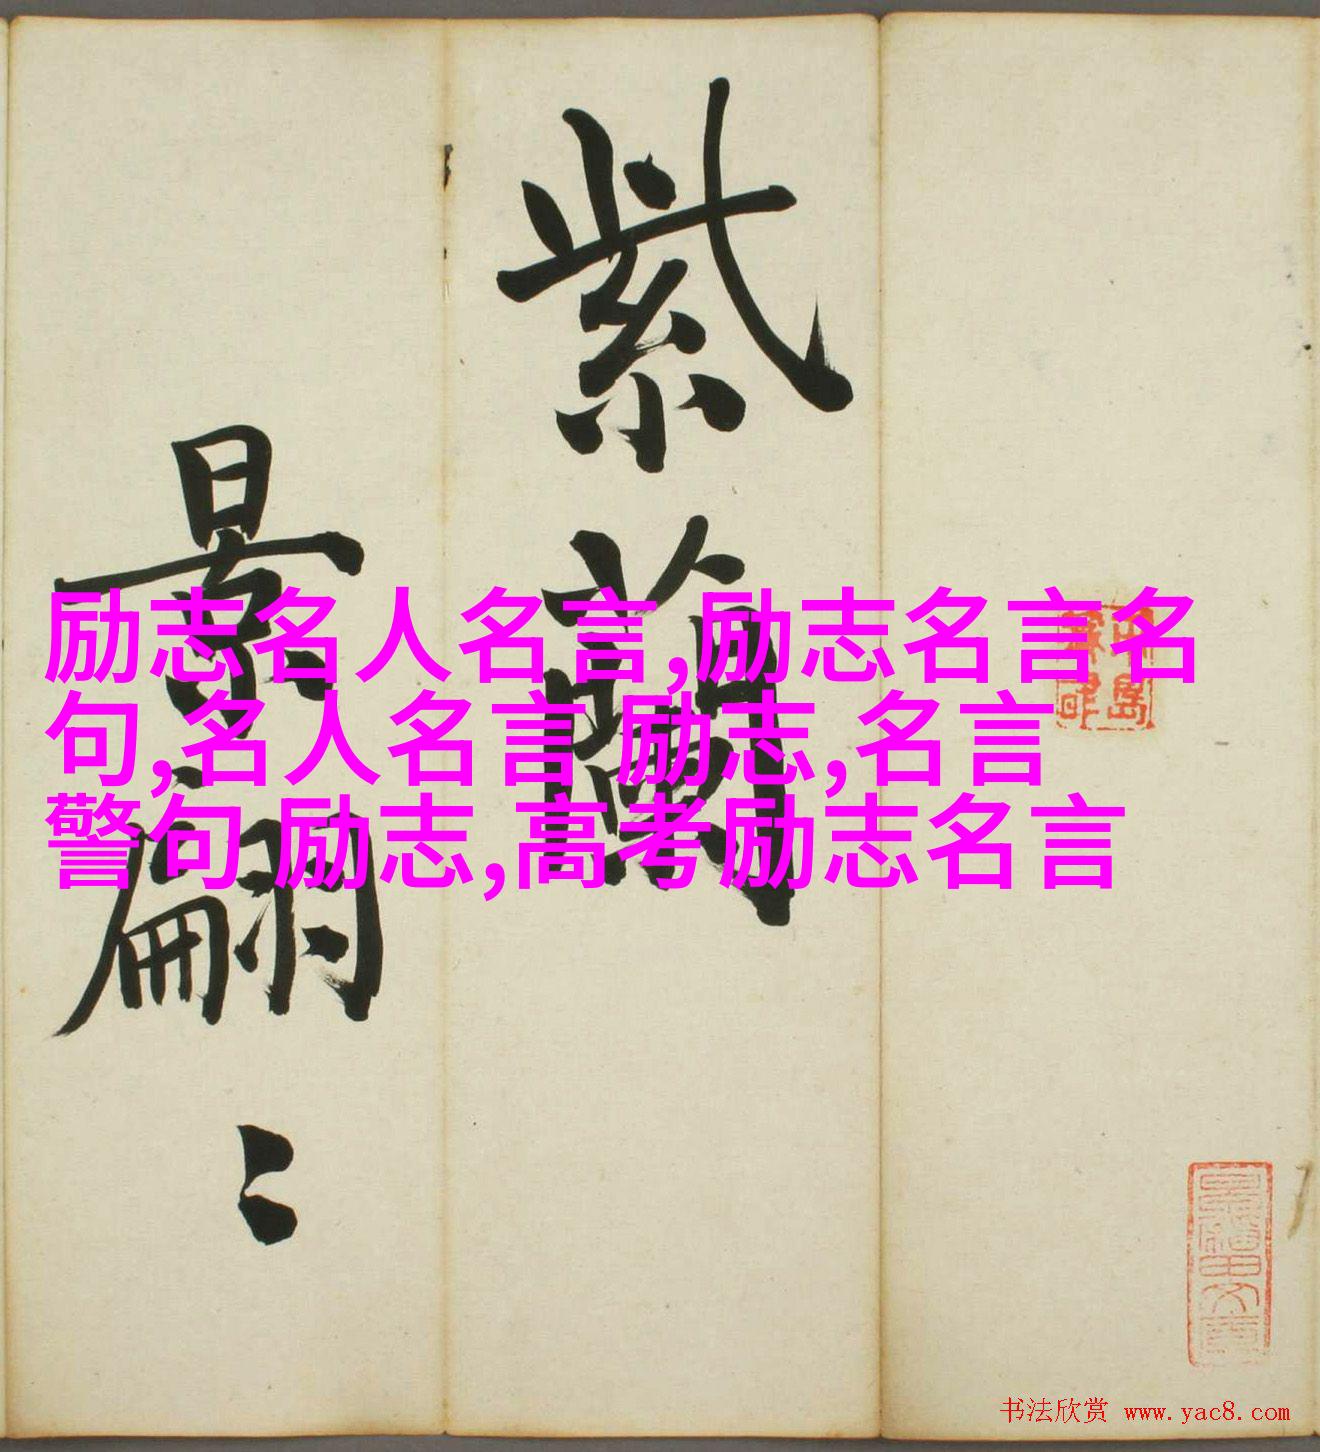 紫蘭
景翩〻
励志名人名言,励志名言名
句,名人名言 励志,名言
警句 励志,高考励志名言
书法欣赏 www.yac8.com